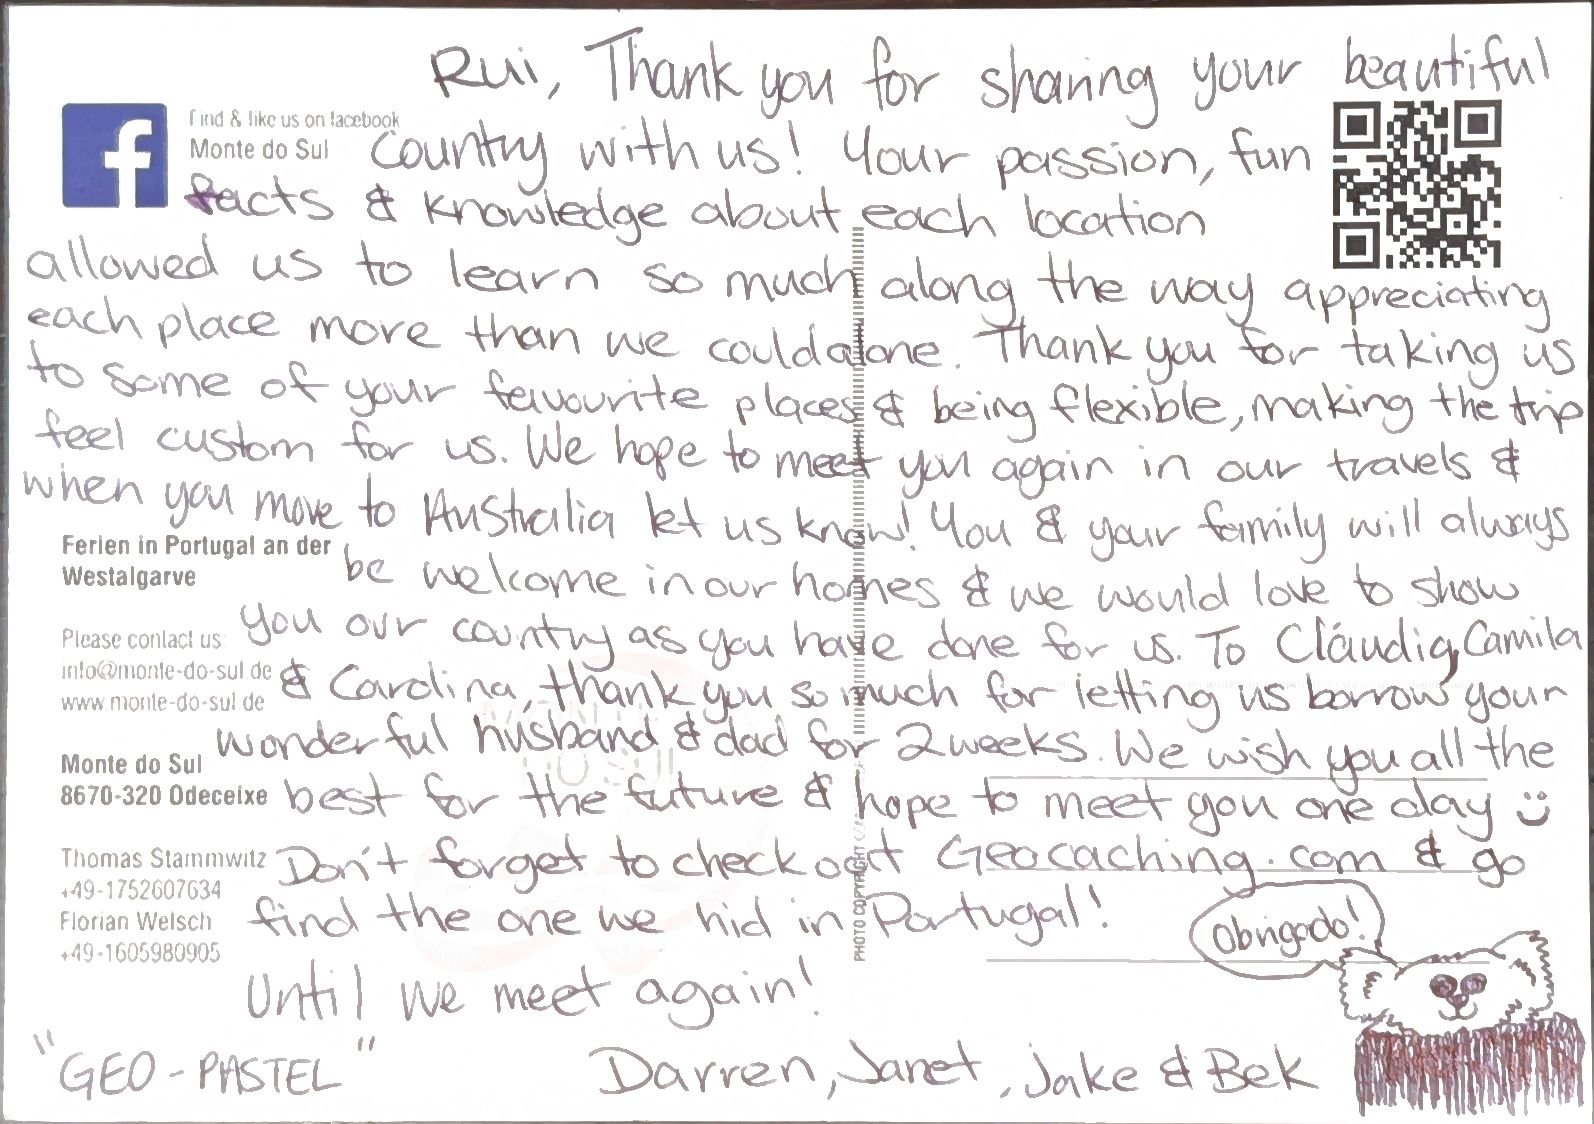 Rui, Thank you for sharing your beautiful
Find & like us on facebook
Monte do Sul
Country with us! Your passion, fun
facts & knowledge about each location
allowed us to learn so much along the way appreciating
each place more than we could alone. Thank you for taking us
to some of your favourite places & being flexible, making the trip
feel custom for us. We hope to meet you again in our travels &
when you move to Australia let us know! You & your family will always
Ferien in Portugal an der
Westalgarve
be welcome in our homes & we would love to show
you our country as you have done for us. To Cláudia, Camila
Please contact us:
info@monte-do-sul.de
www.monte-do-sul.de
& Carolina, thank you so much for letting us borrow your
wonderful husband & dad for 2 weeks. We wish you all the
Monte do Sul
8670-320 Odeceixe
best for the future & hope to meet you one day
Thomas Stammwitz
+49-1752607634
Florian Welsch
+49-1605980905
Don't forget to check out Geocaching.com & go
find the one we hid in Portugal!
PHOTO COPYRIGHT
Obrigado!
Until we meet again!
"GEO-PASTEL"
Darren, Janet, Jake & Bek